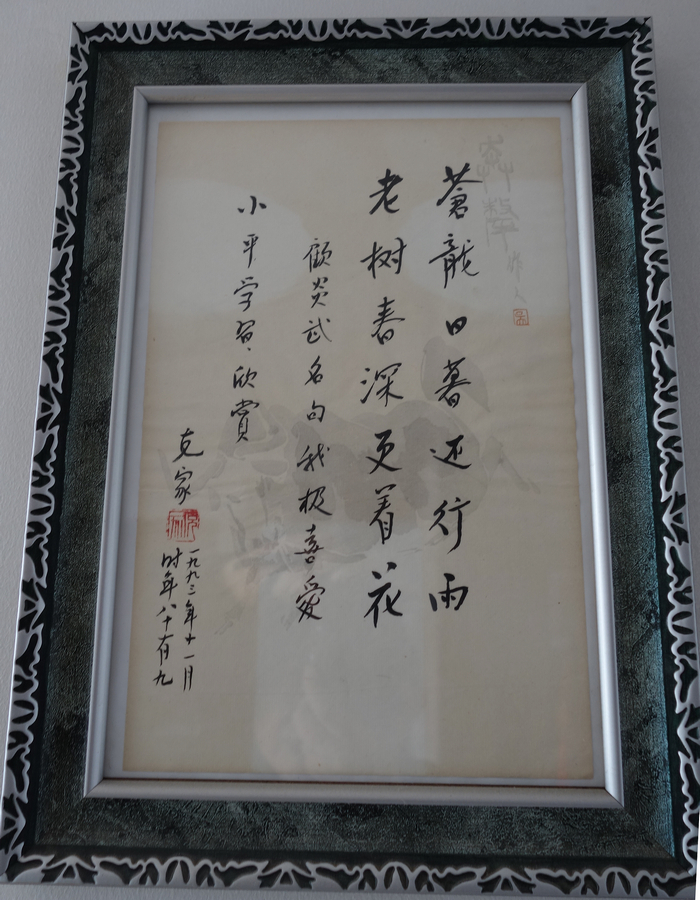 蒼龍日暮还行雨
老树春深更着花
顧炎武名句我极喜爱
小平学习、欣賞
克家
一九九三年十一月
时年八十有九